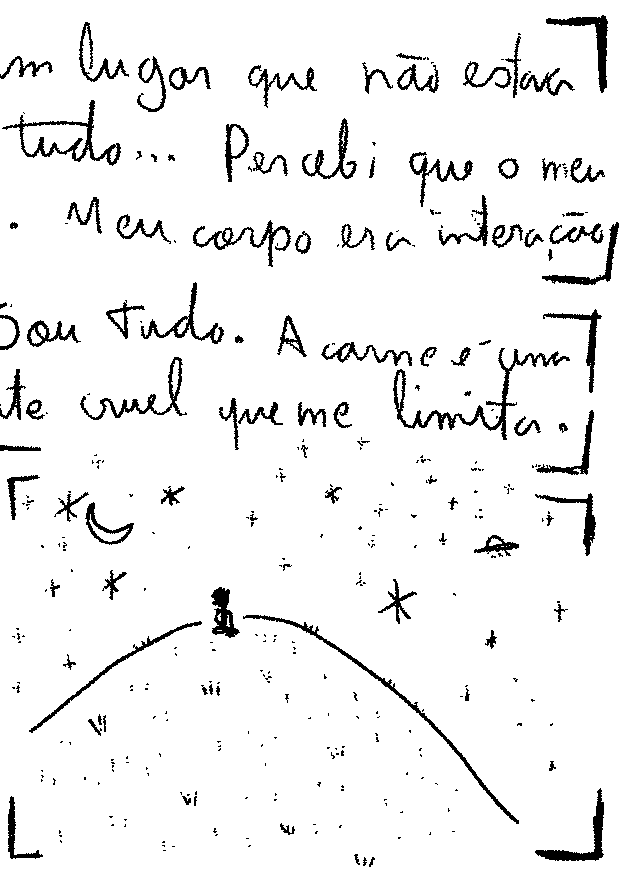 um lugar que não estava
tudo... Percebi que o meu
. Meu corpo era interação
Sou tudo. A carne é uma
te cruel que me limita.